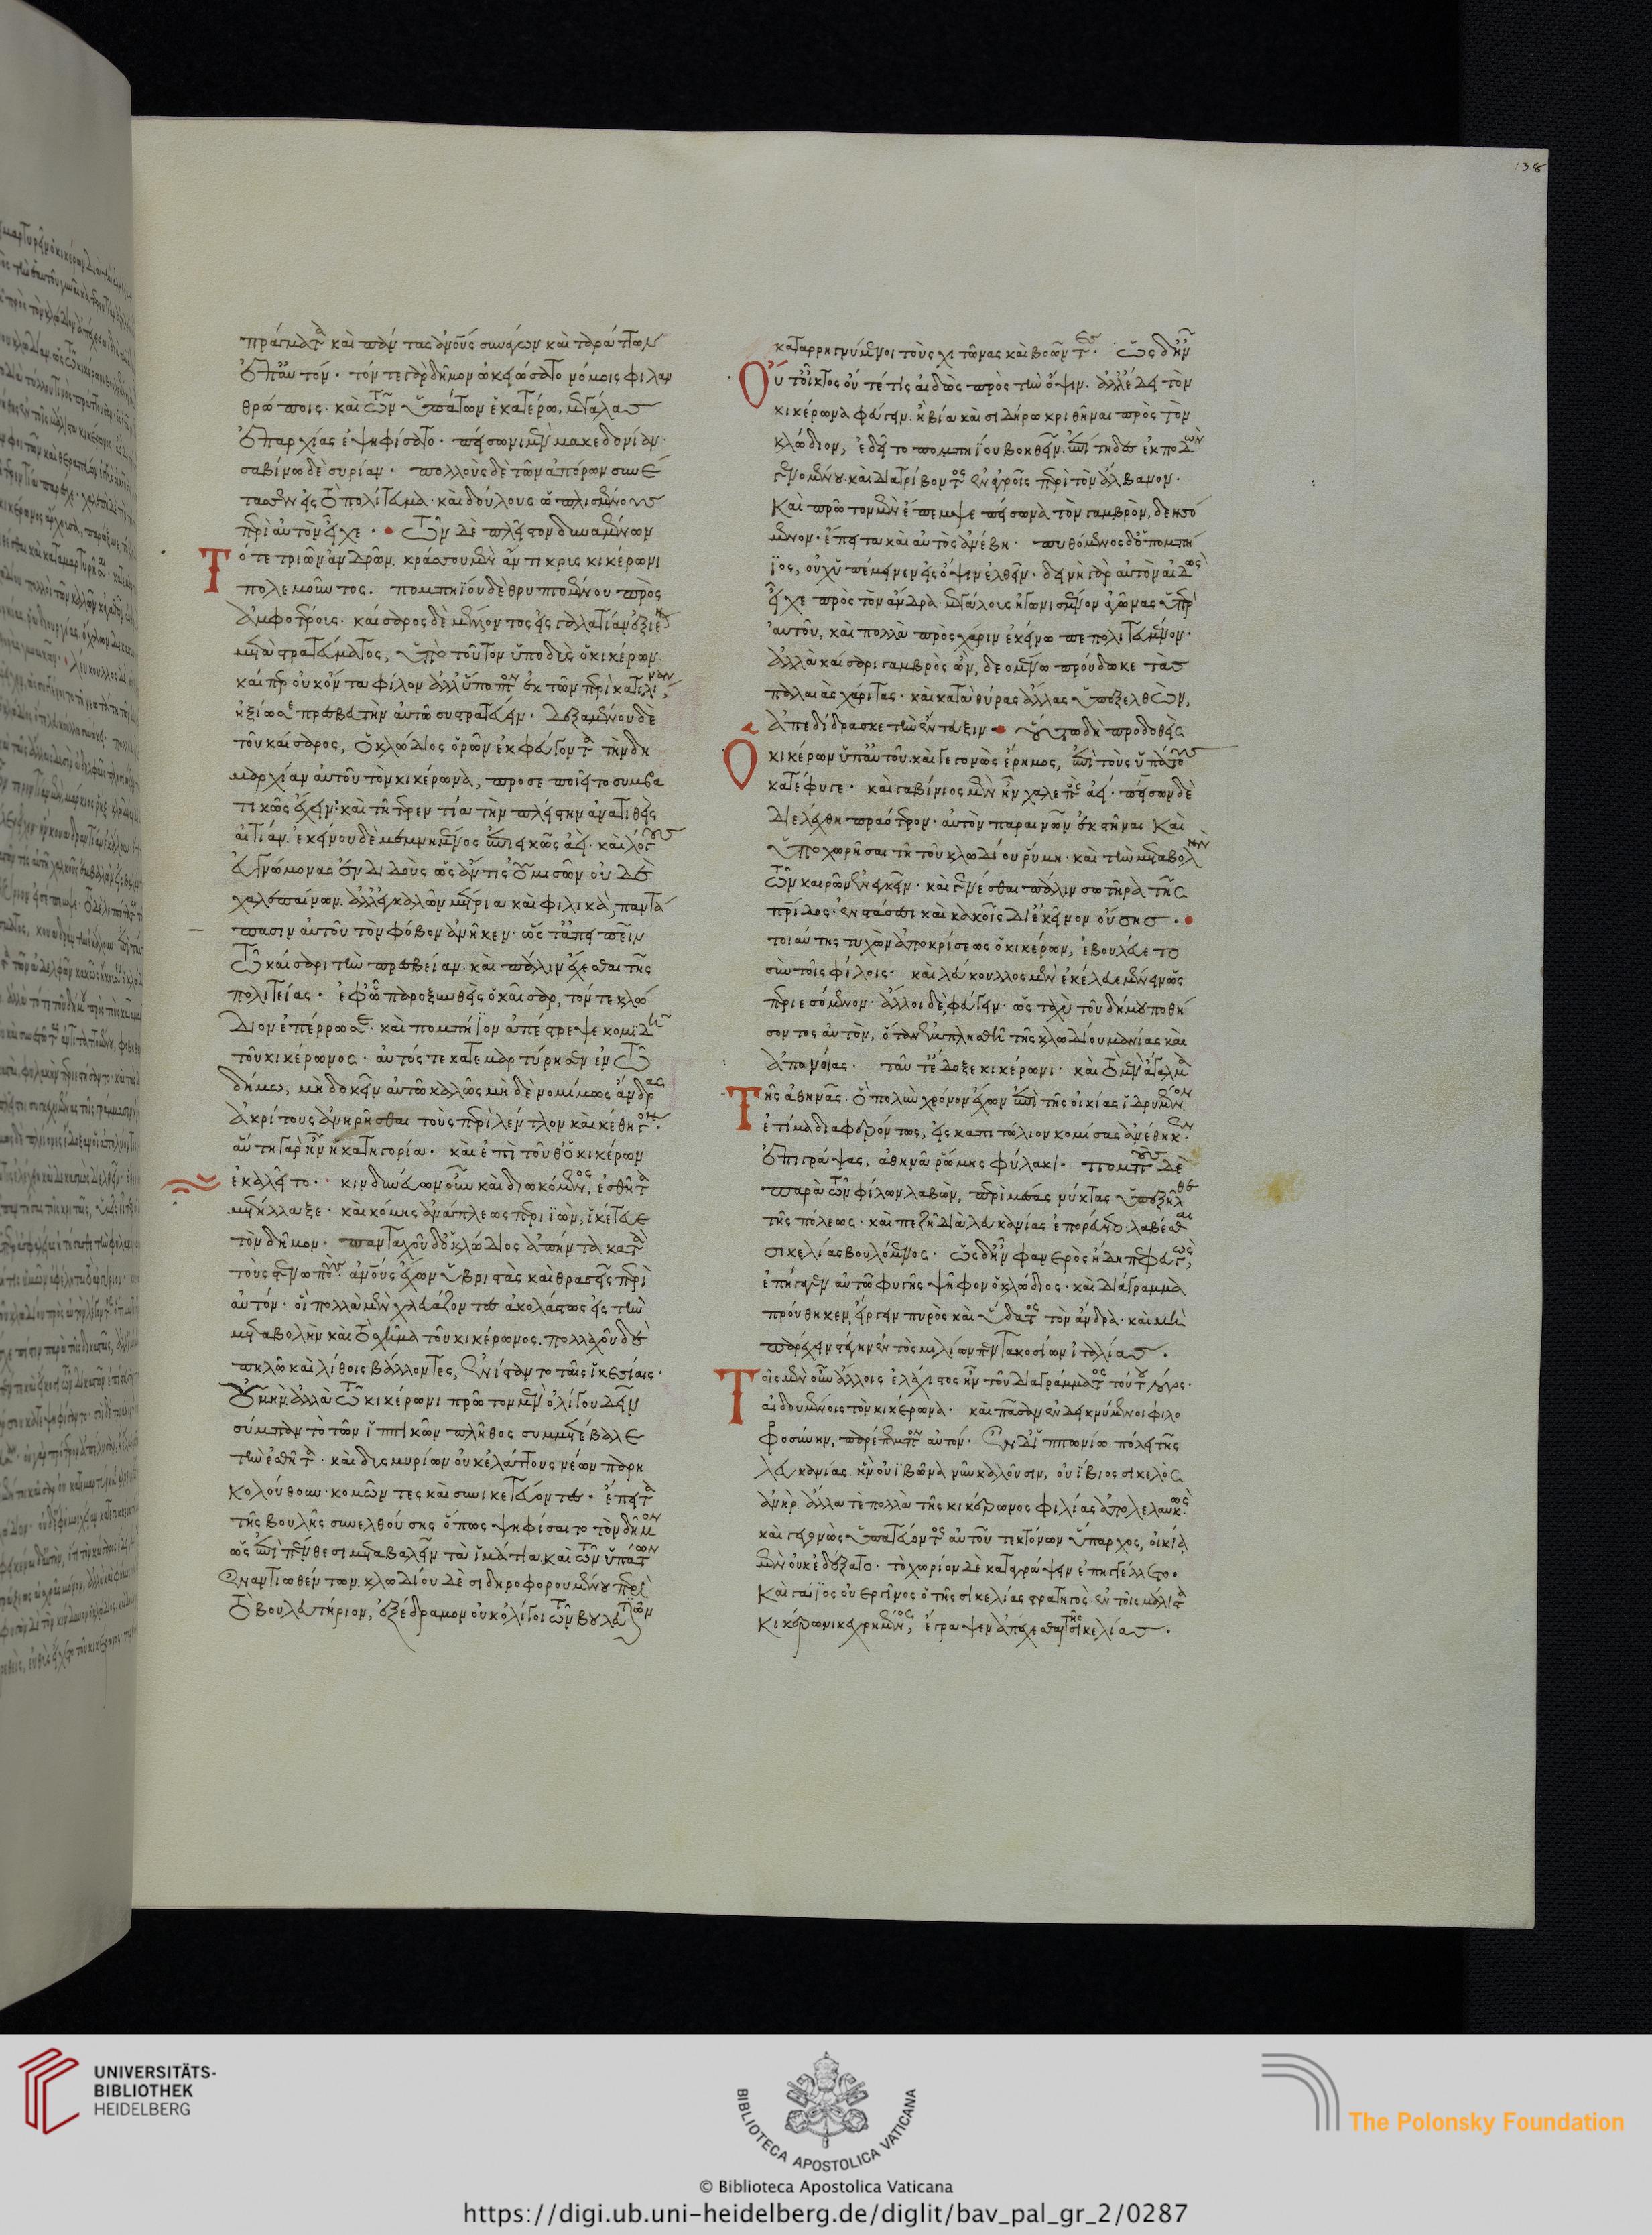 πράγματα καὶ πάντας ἀνους συνάγων καὶ ταράττων
ἐπ' αὐτόν. τόν τε γὰρ δῆμον ὠκειώσατο νόμοις φιλαν
θρώποις. καὶ τῶν ὑπάτων ἑκατέρω, μεγάλας
ἐπαρχίας ἐψηφίσατο. πείσωνι μὲν μακεδονίαν.
γαβίνω δὲ συρίαν. πολλοὺς δὲ τῶν ἀπόρων συνέ
τασεν εἰς τὸ πολίτευμα. καὶ δούλους ὡπλισμένους
περὶ αὐτὸν εἶχε. τῶν δὲ πλεῖστον δυναμένων
Τότε τριῶν ἀνδρῶν. κράσσου μὲν ἄντικρις κικέρωνι
πολεμοῦντος. πομπηΐου δὲ θρυπτομένου πρὸς
ἀμφοτέροις. καίσαρος δὲ μέλλοντος εἰς γαλλατίαν ἐξιέναι
μετὰ στρατεύματος, ὑπὸ τοῦτον ὑποδὺς ὁ κικέρων
καίπερ οὐκ ὄντα φίλον ἀλλ' ὕποπτον ἐκ τῶν περὶ κατελίναν,
ἠξίωσε πρεσβευτὴν αὐτῶ συστρατεύειν. δεξαμένου δὲ
τοῦ καίσαρος, ὁ κλώδιος ὁρῶν ἐκφεύγοντα τὴν δη
μαρχίαν αὐτοῦ τὸν κικέρωνα, προσεποιεῖτο συμβα
τικῶς ἔχειν· καὶ τῆ τερεντία τὴν πλείστην ἀνατιθεὶς
αἰτίαν. ἐκείνου δὲ μεμνημένος ἐπιεικῶς ἀεὶ. καὶ λόγους
εὐγνώμονας ἐνδιδοὺς ὡς ἄν τις οὐ μισῶν οὐδὲ
χαλεπαίνων. ἀλλ' ἐγκαλῶν μέτρια καὶ φιλικὰ, παντά
πασιν αὐτοῦ τὸν φόβον ἀνῆκεν. ὥστ' ἀπειπεῖν
τῶ καίσαρι τὴν πρεσβείαν. καὶ πάλιν ἔχεσθαι τῆς
πολιτείας. ἐφ' ὧ παροξυνθεὶς ὁ καῖσαρ, τόν τε κλώ
διον ἐπέρρωσε. καὶ πομπήϊον ἀπέστρεψε κομιδῆ
τοῦ κικέρωνος. αὐτός τε κατεμαρτύρησεν ἐν τῶ
δήμω, μὴ δοκεῖν αὐτῶ καλῶς μηδὲ νομίμως ἄνδρας
ἀκρίτους ἀνηρῆσθαι τοὺς περὶ λέντλον καὶ κέθηγον.
αὕτη γὰρ ἦν ἡ κατηγορία. καὶ ἐπὶ τοῦθ' ὁ κικέρων
ἐκαλεῖτο. κινδυνεύων οὖν καὶ διωκόμενος, ἐσθῆτα
μετήλλαξε. καὶ κόμης ἀνάπλεως περιϊὼν, ἱκέτευε
τὸν δῆμον. πανταχοῦ δ' ὁ κλώδιος ἀπήντα κατὰ
τοὺς στενωπούς. ἀνους ἔχων ὑβριστὰς καὶ θρασεῖς περὶ
αὐτόν. οἳ πολλὰ μὲν χλευάζοντες ἀκολάστως εἰς τὴν
μεταβολὴν καὶ τὸ σχῆμα τοῦ κικέρωνος. πολλαχοῦ δὲ
πηλῶ καὶ λίθοις βάλλοντες, ἐνίσταντο ταῖς ἱκεσίαις.
Οὐ μὴν ἀλλὰ τῶ κικέρωνι πρῶτον μὲν ὀλίγου δεῖν
σύμπαν τὸ τῶν ἱππικῶν πλῆθος συμμετέβαλε
τὴν ἐσθῆτα. καὶ δισμυρίων οὐκ ἐλάττους νέων παρη
κολούθουν. κομῶντες καὶ συνικετεύοντες. ἔπειτα
τῆς βουλῆς συνελθούσης ὅπως ψηφίσαιτο τὸν δῆμον
ὡς ἐπὶ πένθεσι μεταβαλεῖν τὰ ἱμάτια. καὶ τῶν ὑπάτων
ἐναντιωθέντων. κλωδίου δὲ σιδηροφορουμένου περὶ
τὸ βουλευτήριον, ἐξέδραμον οὐκ ὀλίγοι τῶν βουλευτῶν
καταρρηγνύμενοι τοὺς χιτῶνας καὶ βοῶντες. ὡς δ' ἦν
Οὔτ' οἶκτος οὔτε τίς αἰδὼς πρὸς τὴν ὄψιν. ἀλλ' ἔδει τὸν
κικέρωνα φεύγειν. ἢ βία καὶ σιδήρω κριθῆναι πρὸς τὸν
κλώδιον, ἐδεῖτο πομπηΐου βοηθεῖν. ἐπίτηδες ἐκποδὼν
γενομένου. καὶ διατρίβοντος ἐν ἀγροῖς περὶ τὸν ἄλβανον.
Καὶ πρῶτον μὲν ἔπεμψε πείσωνα τὸν γαμβρὸν, δεησό
μενον. ἔπειτα καὶ αὐτὸς ἀνέβη. πυθόμενος δ' ὁ πομπή
ϊος, οὐχ' ὑπέμεινεν εἰς ὄψιν ἐλθεῖν. δεινὴ γὰρ αὐτὸν αἰδὼς
εἶχε πρὸς τὸν ἄνδρα. μεγάλους ἠγωνισμένον ἀγῶνας ὑπὲρ
αὐτοῦ, καὶ πολλὰ πρὸς χάριν ἐκείνω πεπολιτευμένον.
ἀλλὰ καίσαρι γαμβρὸς ὢν, δεομένω προύδωκε τὰς
παλαιὰς χάριτας. καὶ κατὰ θύρας ἄλλας ὑπεξελθὼν,
ἀπεδίδρασκε τὴν ἔντευξιν. οὕτω δὴ προδοθεὶς
Ὁ κικέρων ὑπ' αὐτοῦ. καὶ γεγονὼς ἔρημος, ἐπὶ τοὺς ὑπάτους
κατέφυγε. καὶ γαβίνιος μὲν ἦν χαλεπὸς ἀεί. πείσων δὲ
διελέχθη πραότερον. αὐτὸν παραινῶν ἐκστῆναι καὶ
ὑποχωρῆσαι τῆ τοῦ κλωδίου ῥύμη. καὶ τὴν μεταβολὴν
τῶν καιρῶν ἐνεγκεῖν. καὶ γενέσθαι πάλιν σωτῆρα τῆς
πρίδος. ἐν στάσεσι καὶ κακοῖς δι' ἐκεῖνον οὔσης.
τοιαύτης τυχὼν ἀποκρίσεως ὁ κικέρων, ἐβουλεύετο
σὺν τοῖς φίλοις. καὶ λεύκουλλος μὲν ἐκέλευε μένειν ὡς
περιεσόμενον. ἄλλοι δὲ, φεύγειν. ὡς ταχὺ τοῦ δήμου ποθή
σοντος αὐτὸν, ὅταν ἐμπλησθῆ τῆς κλωδίου μανίας καὶ
ἀπονοίας. ταῦτ' ἔδοξε κικέρωνι. καὶ τὸ μὲν ἄγαλμα
Τῆς ἀθηνᾶς. ὃ πολὺν χρόνον ἔχων ἐπὶ τῆς οἰκίας ἱδρυμένον.
ἐτίμα διαφερόντως, εἰς καπιτώλιον κομίσας ἀνέθηκεν.
ἐπιγράψας, ἀθηνᾶ ῥώμης φύλακι. πομποὺς δὲ
παρὰ τῶν φίλων λαβὼν, περὶ μέσας νύκτας ὑπεξῆλθε
τῆς πόλεως. καὶ πεζῆ διὰ λευκανίας ἐπορεύετο. λαβέσθαι
σικελίας βουλόμενος. ὡς δ' ἦν φανερὸς ἤδη πεφευγὼς,
ἐπήγαγεν αὐτῶ φυγῆς ψῆφον ὁ κλώδιος. καὶ διάγραμμα
προύθηκεν, εἴργειν πυρὸς καὶ ὕδατος τὸν ἄνδρα. καὶ μὴ
παρέχειν στέγην ἐντὸς μιλίων πεντακοσίων ἰταλίας.
Τοῖς μὲν οὖν ἄλλοις ἐλάχιστος ἦν τοῦ διαγράμματος τούτου λόγος.
αἰδουμένοις τὸν κικέρωνα. καὶ πᾶσαν ἐνδεικνύμενοι φιλο
φροσύνην, παρέπεμπον αὐτόν. ἐν δ' ἱππωνίω πόλει τῆς
λευκανίας. ἣν οὐϊβῶνα νῦν καλοῦσιν, οὐΐβιος σικελὸς
ἀνὴρ. ἄλλα τὲ πολλὰ τῆς κικέρωνος φιλίας ἀπολελαυκὼς.
καὶ γεγονὼς ὑπατεύοντος αὐτοῦ τεκτόνων ὕπαρχος, οἰκία
μὲν οὐκ ἐδέξατο. τὸ χωρίον δὲ καταγράψειν ἐπηγγέλλετο.
Καὶ γαίϊος οὐεργῖνος ὁ τῆς σικελίας στρατηγὸς. ἐν τοῖς μάλιστα
κικέρωνι κεχρημένος, ἔγραψεν ἀπέχεσθαι τῆς σικελίας.
138
UNIVERSITÄTS-
BIBLIOTHEK
HEIDELBERG
BIBLIOTECA APOSTOLICA VATICANA
The Polonsky Foundation
© Biblioteca Apostolica Vaticana
https://digi.ub.uni-heidelberg.de/diglit/bav_pal_gr_2/0287